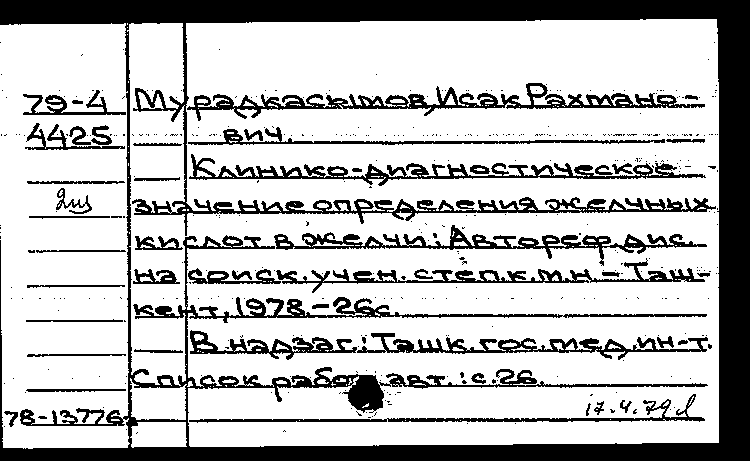 79-4 Мурадкасымов, Исак Рахмано-
4425 вич.
Клинико-диагностическое
2из значение определения желчных
кислот в желчи: Автореф. дис.
на соиск. учен. степ. к.м.н. - Таш-
кент, 1978. - 26с.
В надзаг.: Ташк. гос. мед. ин-т.
Список работ авт.: с. 26.
78-13776 17.4.79